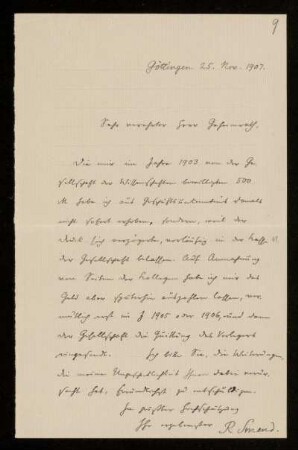 9
Göttingen 25. Nov. 1907.
Sehr verehrter Herr Geheimrath.
Die mir im Jahre 1903 von der Ge
sellschaft der Wissenschaften bewilligten 500
M. habe ich aus Geschäftsunkenntnis damals
nicht sofort erhoben, sondern, weil der
Druck sich verzögerte, vorläufig in der Kasse d.
Gesellschaft belassen. Auf
von Seiten der Kollegen habe ich mir das
Geld aber späterhin auszahlen lassen, ver
mutlich erst im J 1905 oder 1906, und dann
der Gesellschaft die Quittung des Verlegers
eingesandt. Ich bitte Sie, die
die meine Ungeschicklichkeit Ihnen dabei verur
sacht hat, freundlichst zu entschuldigen.
In größter Hochschätzung
Ihr ergebenster R. Smend.